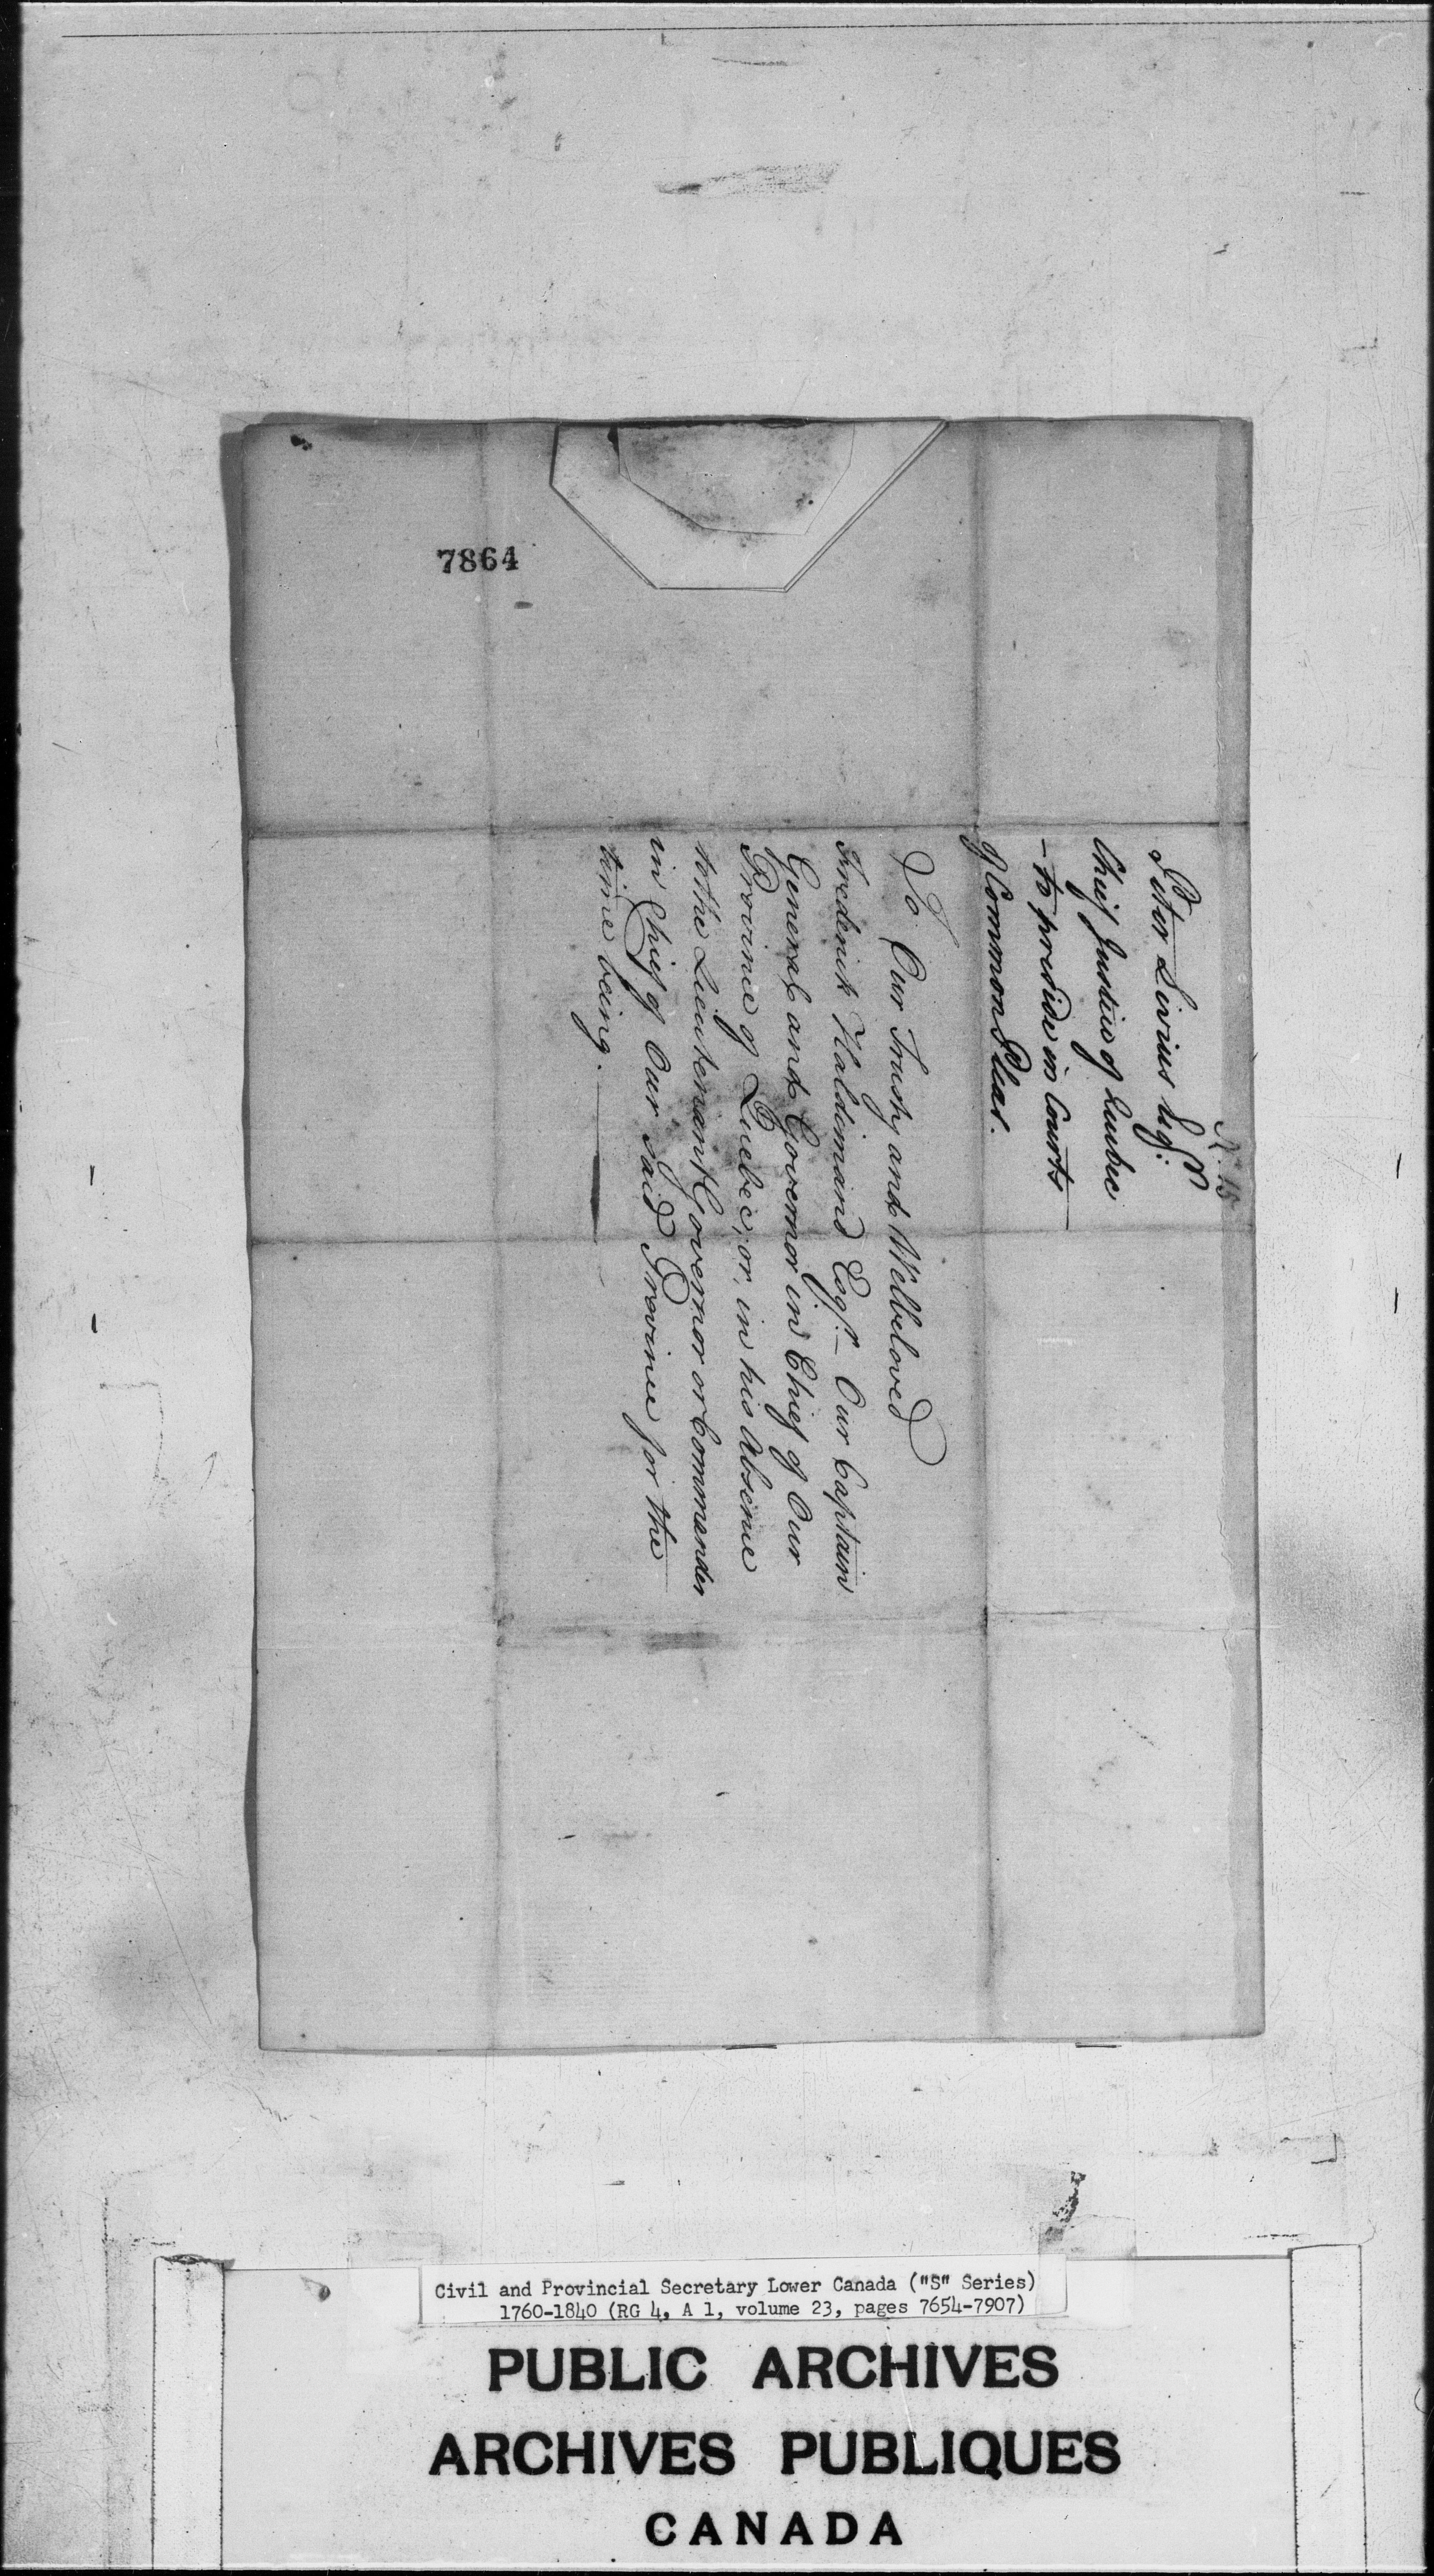 7864
N. 15
Peter Livius Esqr.
Chief Justice of Quebec
- to preside in Courts
of Common Pleas.
To Our Trusty and Welbeloved
Frederick Haldimand Esqr. - Our Captain
General and Governor in Chief of Our
Province of Quebec, or, in his Absence
to the Lieutenant Governor or Commander
in Chief of Our said Province for the
time being.
Civil and Provincial Secretary Lower Canada ("S" Series)
1760-1840 (RG 4, A 1, volume 23, pages 7654-7907)
PUBLIC ARCHIVES
ARCHIVES PUBLIQUES
CANADA